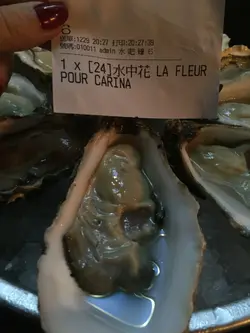 8
1229 20:27 打印:20:27:39
010011 admin 水
1 x [24]水中花 LA FLEUR
POUR CARINA